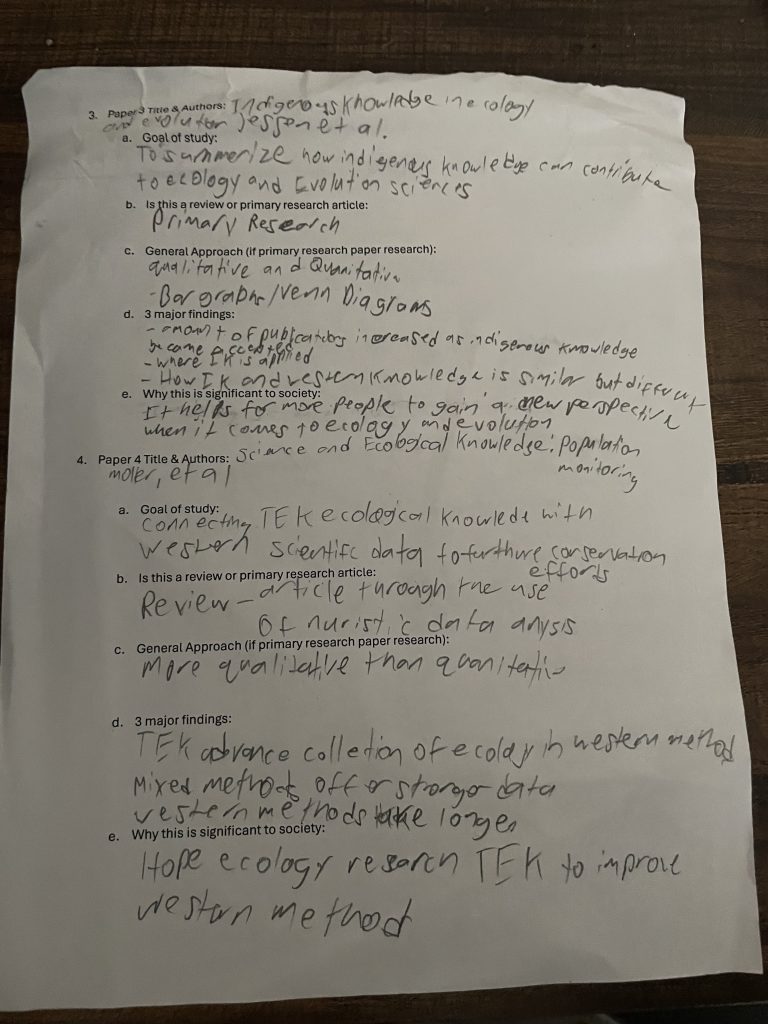 3. Paper 3 Title & Authors: Indigenous Knowledge in ecology
and evolution Jessen et al.
a. Goal of study:
To summerize how indigenous knowledge can contribute
to ecology and Evolution sciences
b. Is this a review or primary research article:
Primary Research
c. General Approach (if primary research paper research):
qualitative and Quanitative
-Bar graphs/Venn Diagrams
d. 3 major findings:
- amount of publications increased as indigenous knowledge
became accepted
- where IK is applied
- How IK and western Knowledge is similar but different
e. Why this is significant to society:
It helps for more people to gain a new perspective
when it comes to ecology and evolution
4. Paper 4 Title & Authors: Science and Ecological Knowledge: Population
monitoring
moler, et al
a. Goal of study:
connecting TEK ecological knowlede with
Western scientifc data to furthure conservation
efforts
b. Is this a review or primary research article:
Review - article through the use
of nuristic data anysis
c. General Approach (if primary research paper research):
More qualitative than quanitative
d. 3 major findings:
TEK advance colletion of ecology in western method
Mixed methods offer stronger data
western methods take longer
e. Why this is significant to society:
Hope ecology research TEK to improve
western method